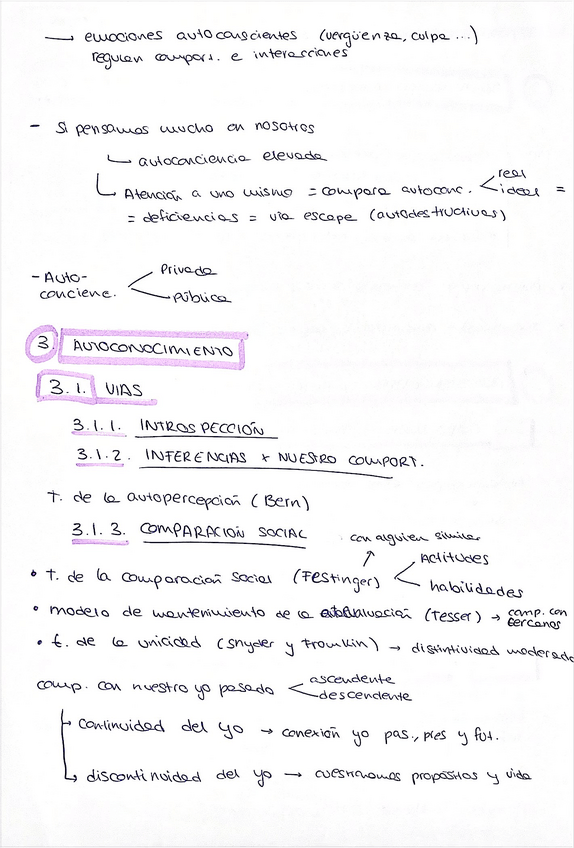 → emociones autoconscientes (vergüenza, culpa ...)
regulan comport. e interacciones
- Si pensamos mucho en nosotros
↳ autoconciencia elevada
↳ Atención a uno mismo = compara autoconc. < real
ideal =
= deficiencias = vía escape (autodestructivas)
- Auto-concienc. < Privada
Pública
3. AUTOCONOCIMIENTO
3.1. VIAS
3.1.1. INTROSPECCIÓN
3.1.2. INFERENCIAS x NUESTRO COMPORT.
t. de la autopercepción (Bern)
3.1.3. COMPARACIÓN SOCIAL
con alguien similar
• t. de la comparación social (Festinger) < Actitudes
habilidades
• modelo de mantenimiento de la autoevaluación (Tesser) → comp. con cercanos
• t. de la unicidad (Snyder y Fromkin) → distintividad moderada
comp. con nuestro yo pasado < ascendente
descendente
↳ continuidad del yo → conexión yo pas., pres y fut.
↳ discontinuidad del yo → cuestionamos propósitos y vida